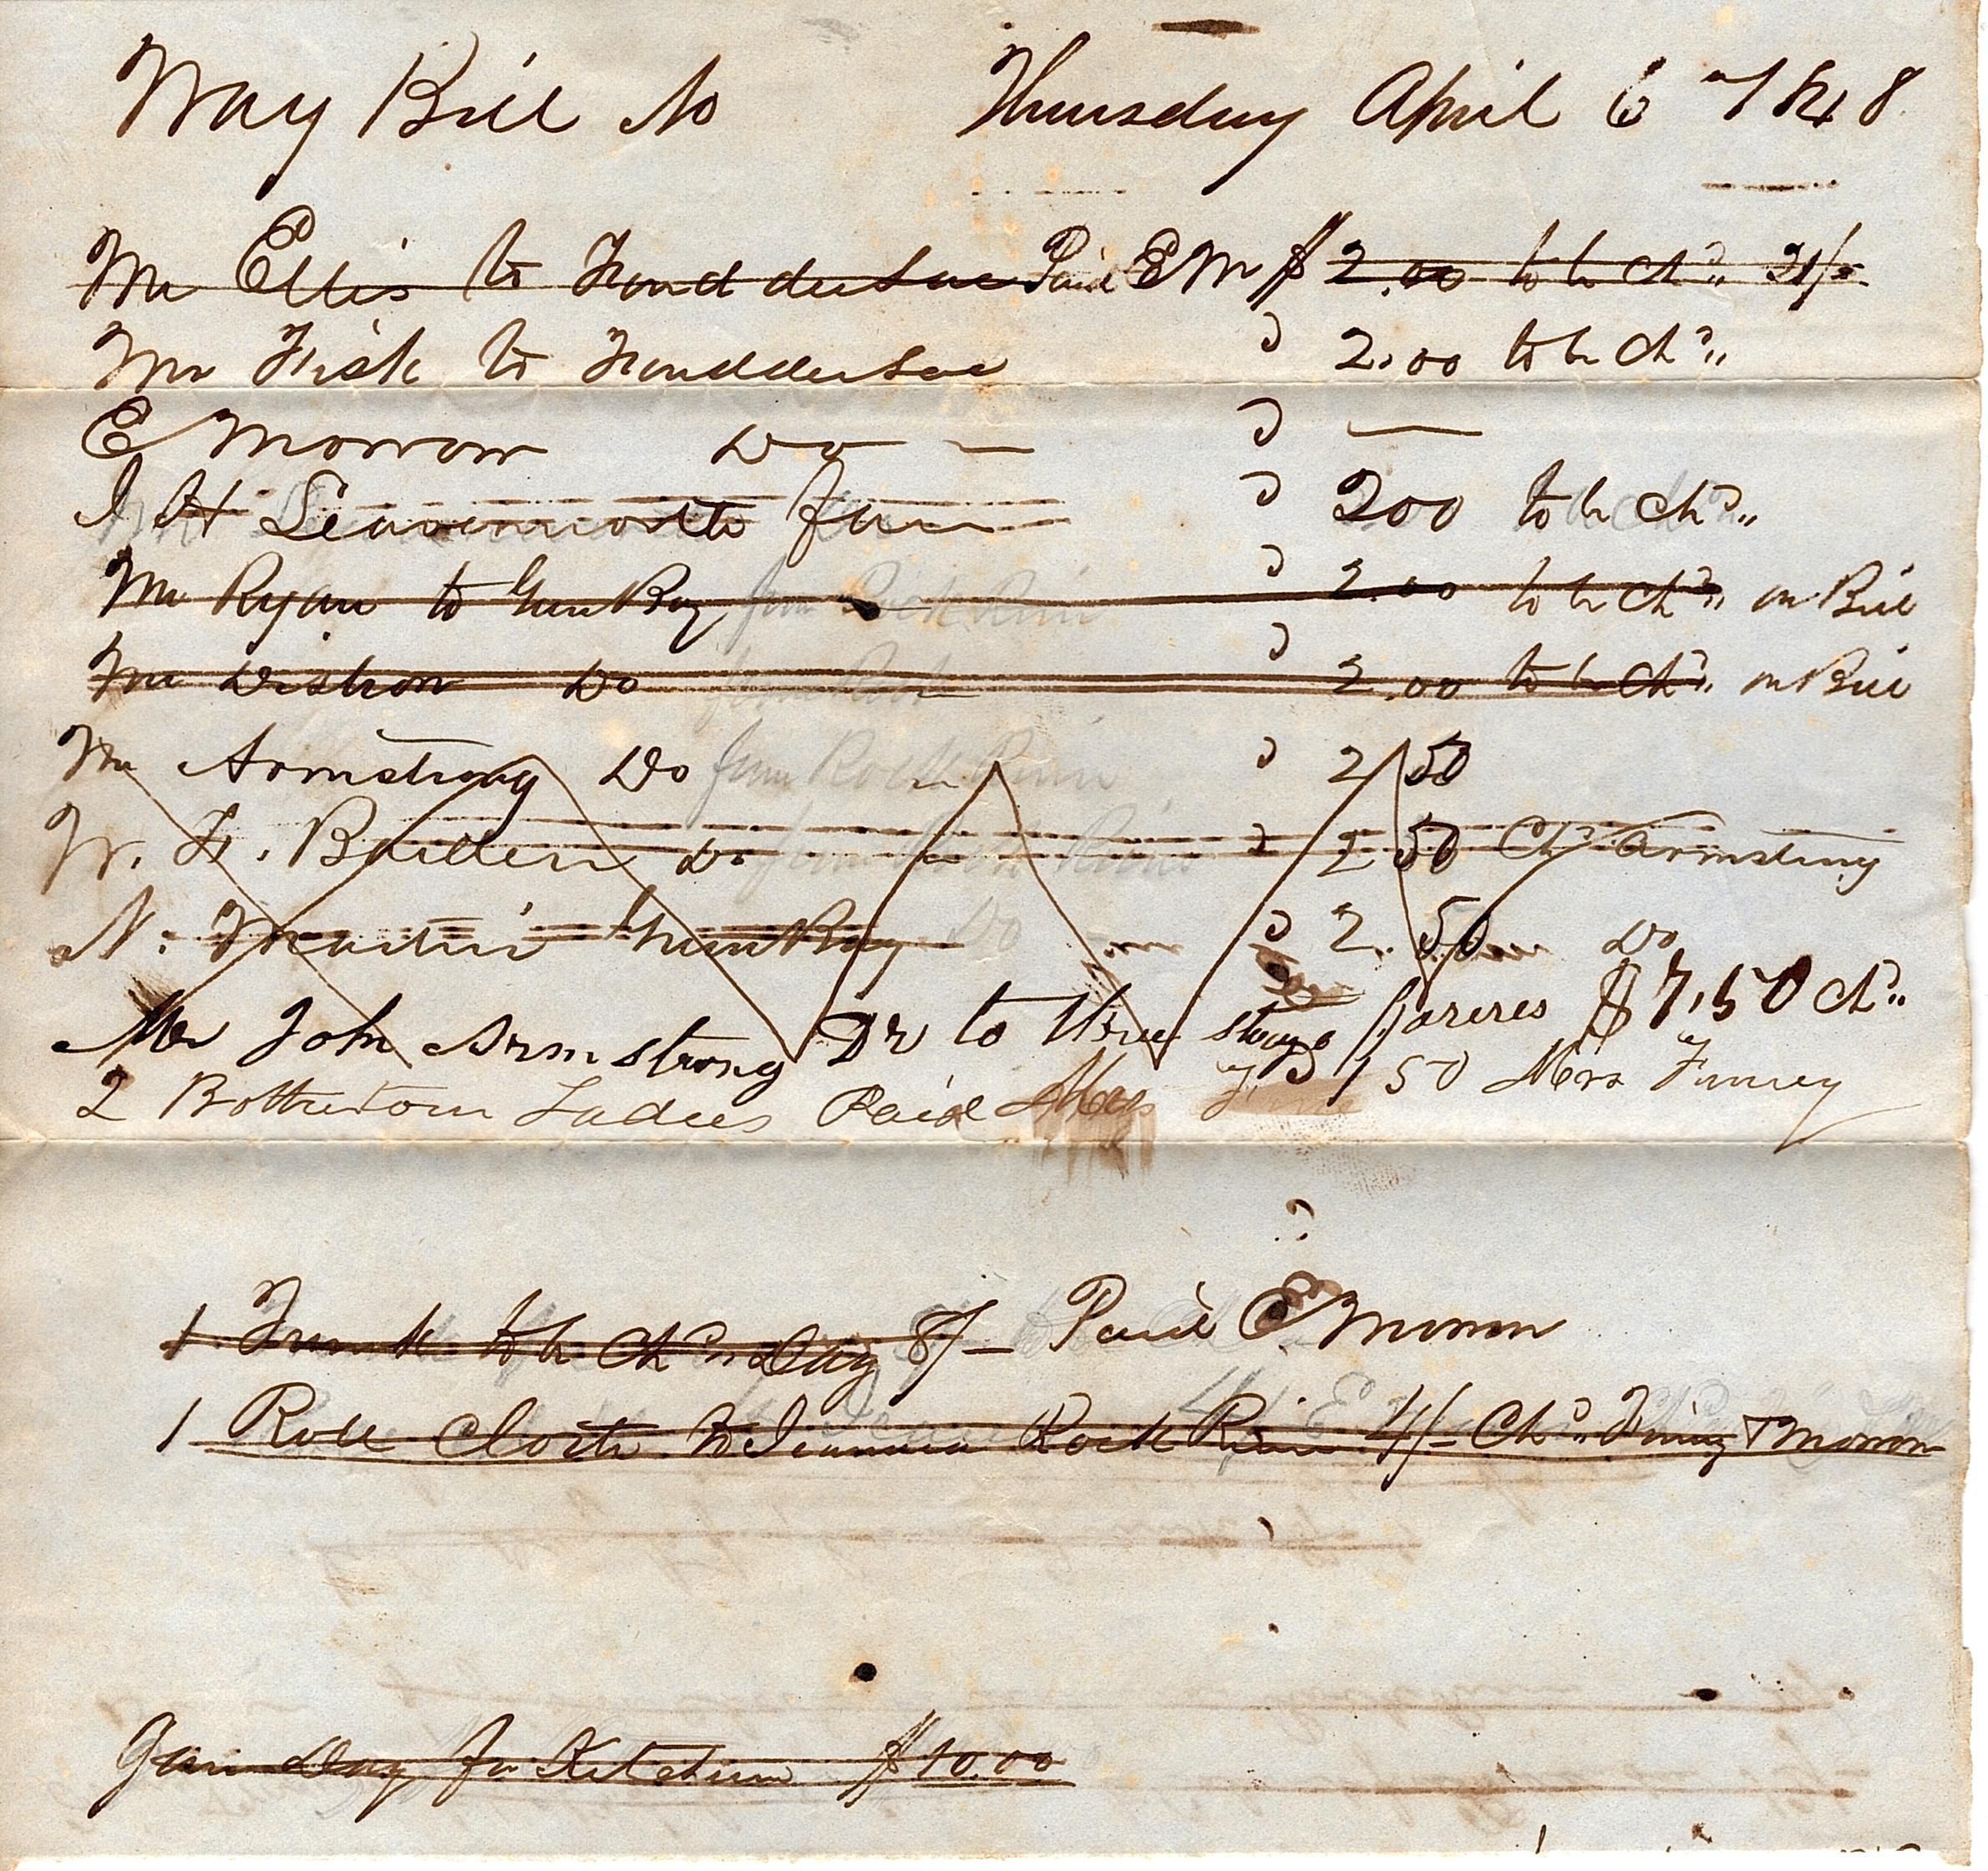 Way Bill No Thursday April 6 1848
Mr Ellis to Fond du Lac Paid E M $ 2.00 to be chd 21/-
Mr Fisk to Fond du Lac " 2.00 to be chd
E Morrow Do — " —
J H Leavenworth fare " 200 to be chd
Mr Ryan to Green Bay from Rock River " 2.00 to be chd on Bill
Mr Do from Rock " 2.00 to be chd on Bill
Mr Armstrong Do from Rock River " 2 50
W. F. Do from Rock River " 2 50 Chd Armstrong
N. Martin Green Bay Do " 2.50 Do
Mr John Armstrong Dr to three stage fareres $7,50 chd
2 Ladies Paid 1 50 Mrs Finney
1 Trunk to be chd Day 8/- Paid E Morrow
1 Roll Cloth to Rock River 4/- Chd Finney & Morrow
Day for Ketchum $10.00